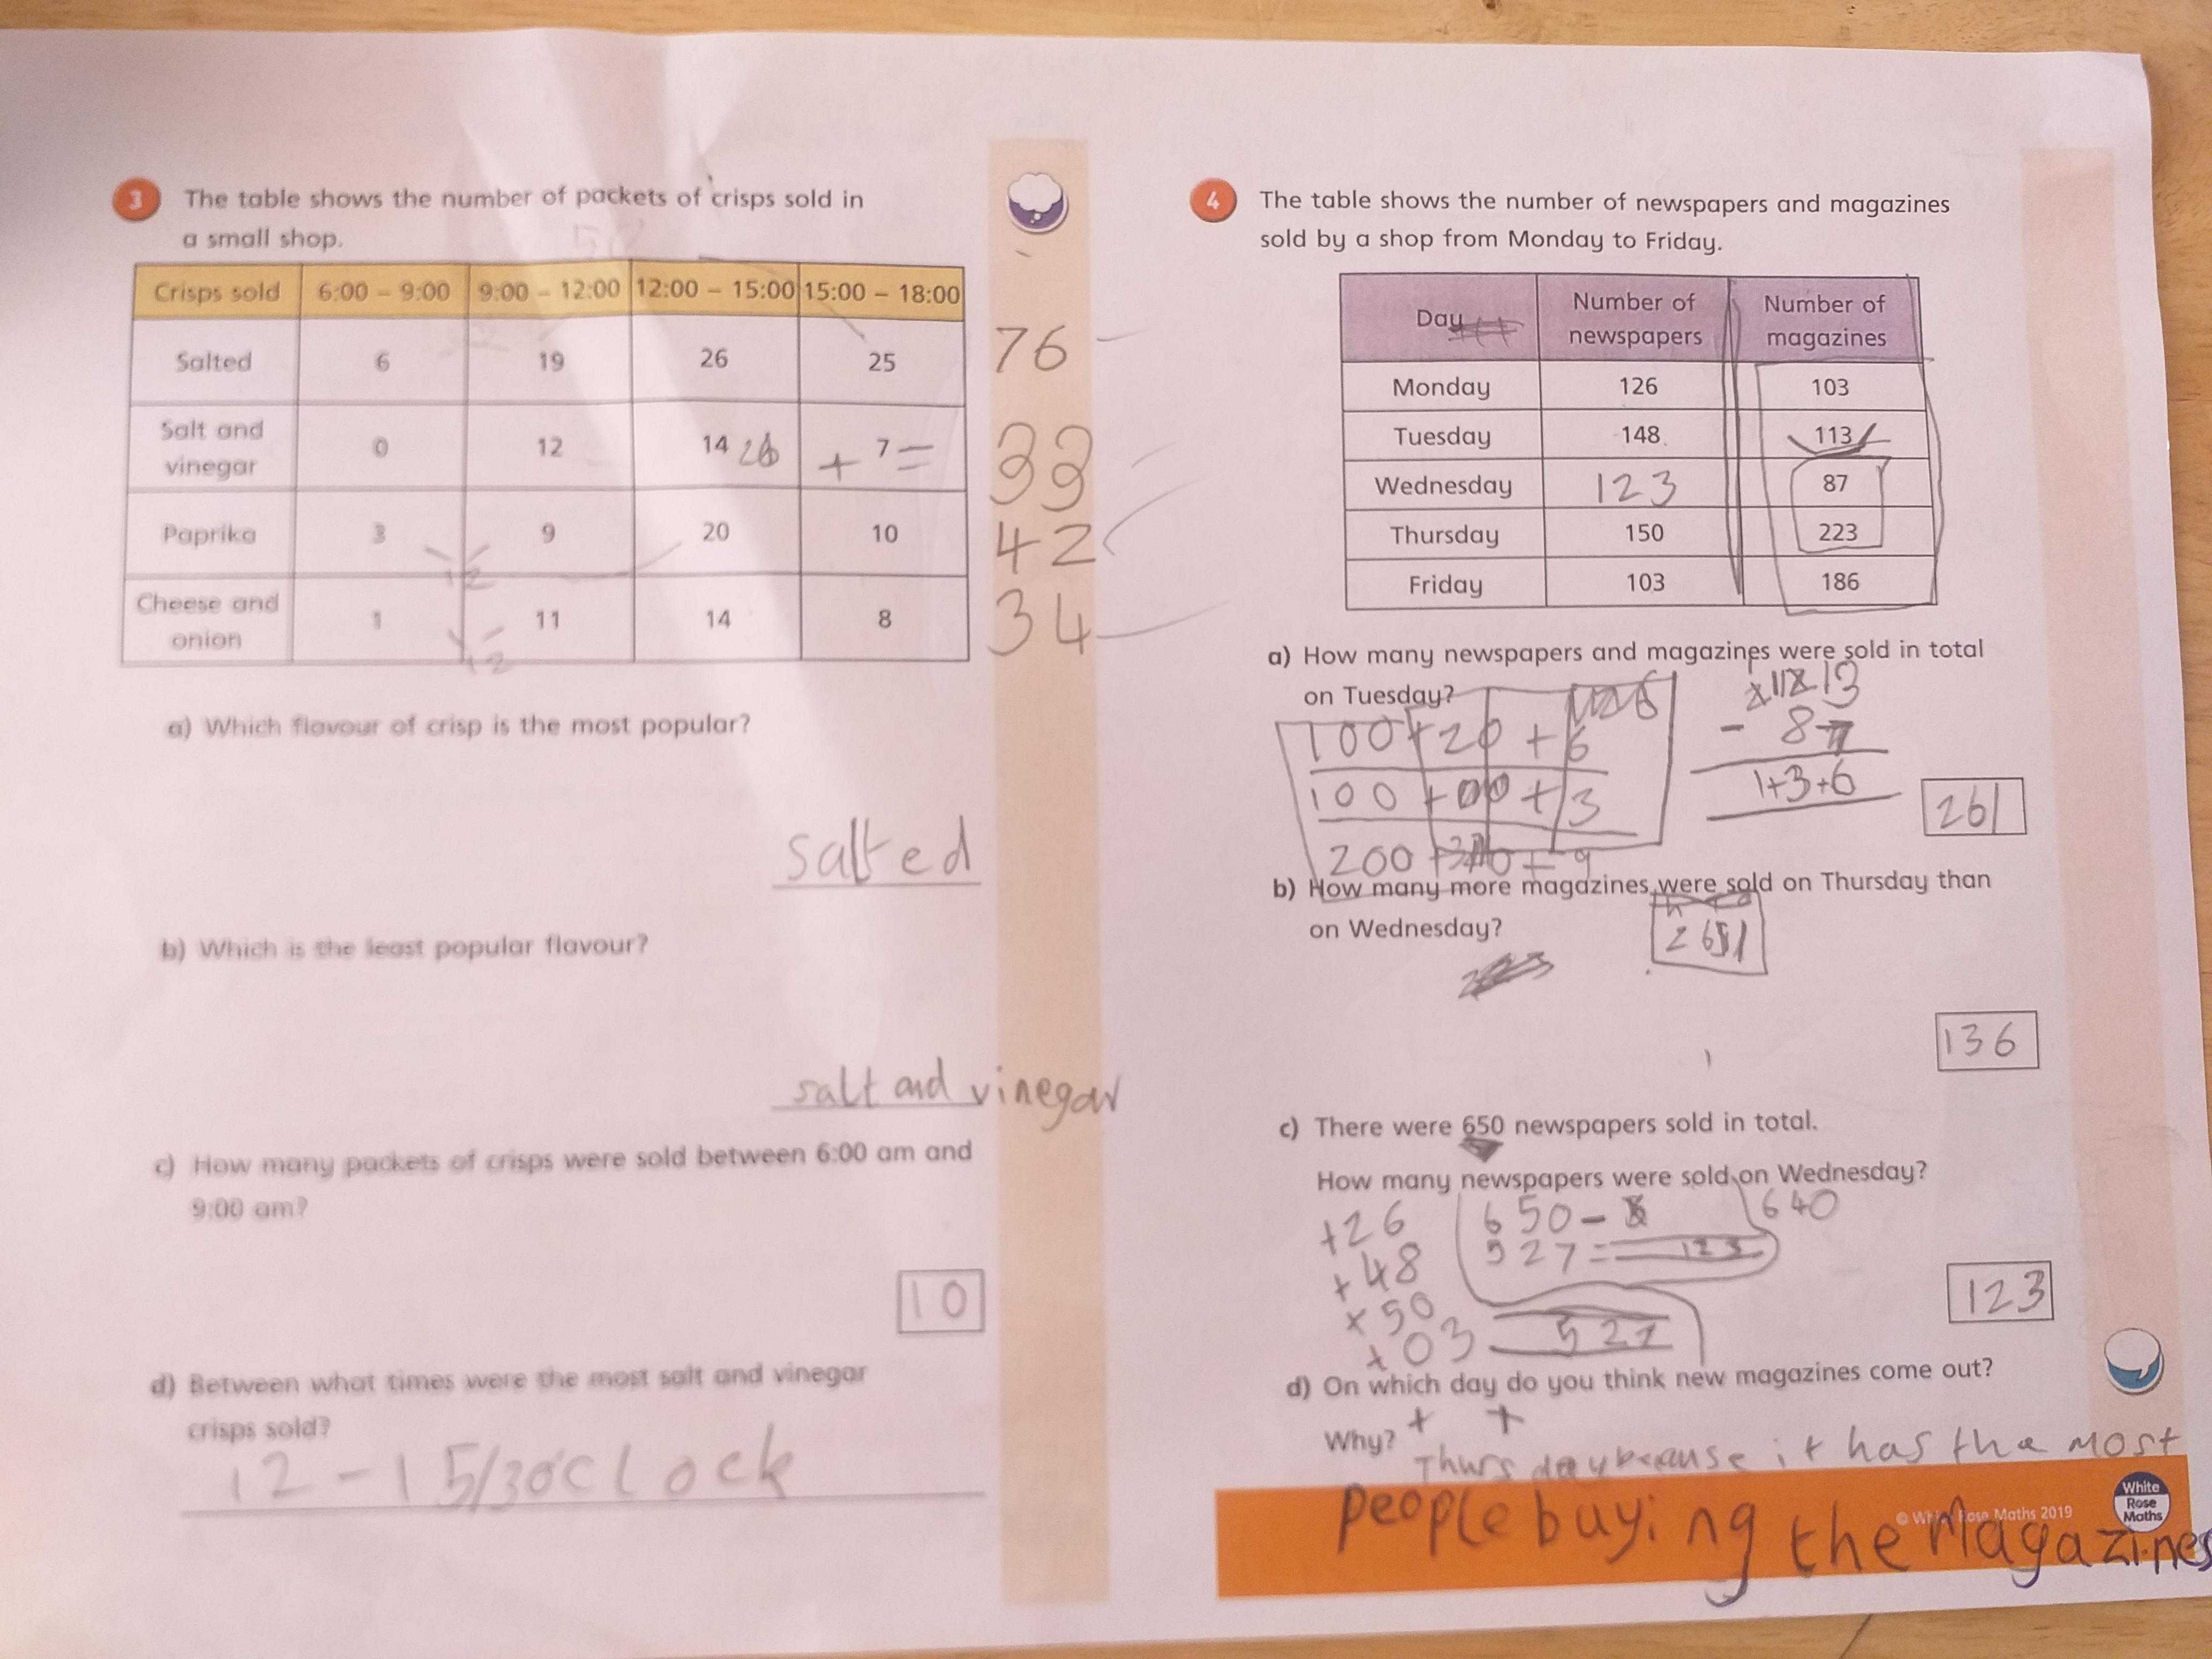 3 The table shows the number of packets of crisps sold in
a small shop.
Crisps sold 6:00 – 9:00 9:00 – 12:00 12:00 – 15:00 15:00 – 18:00
Salted 6 19 26 25 76
Salt and vinegar 0 12 14 26 + 7 = 33
Paprika 3 9 20 10 42
12
Cheese and onion 1 11 14 8 34
12
a) Which flavour of crisp is the most popular?
salted
b) Which is the least popular flavour?
salt and vinegar
c) How many packets of crisps were sold between 6:00 am and
9:00 am?
10
d) Between what times were the most salt and vinegar
crisps sold?
12 – 15/3o'clock
4 The table shows the number of newspapers and magazines
sold by a shop from Monday to Friday.
Day Number of newspapers Number of magazines
Monday 126 103
Tuesday 148 113
Wednesday 123 87
Thursday 150 223
Friday 103 186
a) How many newspapers and magazines were sold in total
on Tuesday?
100 + 20 + 6
13
- 87
100 + 00 + 3
1+3+6
261
200
b) How many more magazines were sold on Thursday than
on Wednesday?
136
c) There were 650 newspapers sold in total.
How many newspapers were sold on Wednesday?
+26 650 – 640
+48 527 = 123
+50
+03 527
123
d) On which day do you think new magazines come out?
Why? + +
Thursday because it has the most
People buying the Magazines
© White Rose Maths 2019
White
Rose
Maths